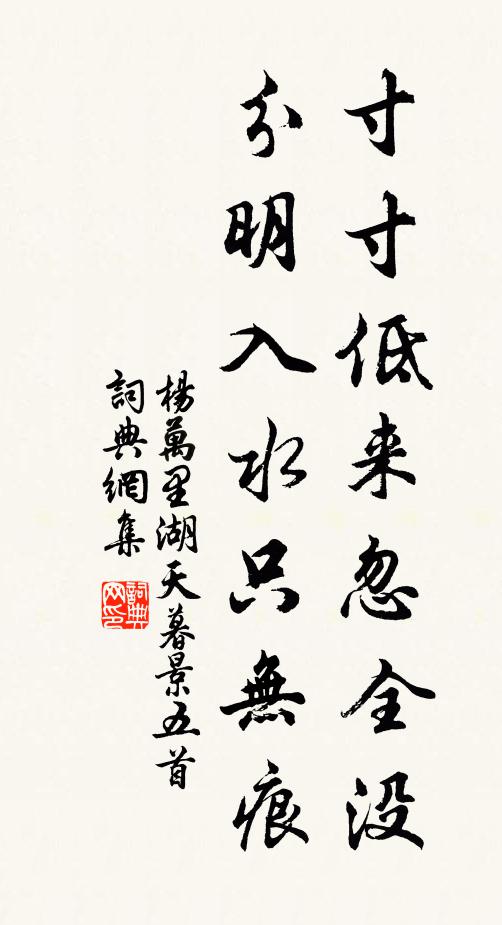 寸寸低来忽全没
分明入水只無痕
楊萬里湖天暮景五首
詞典網集
詞典
网印